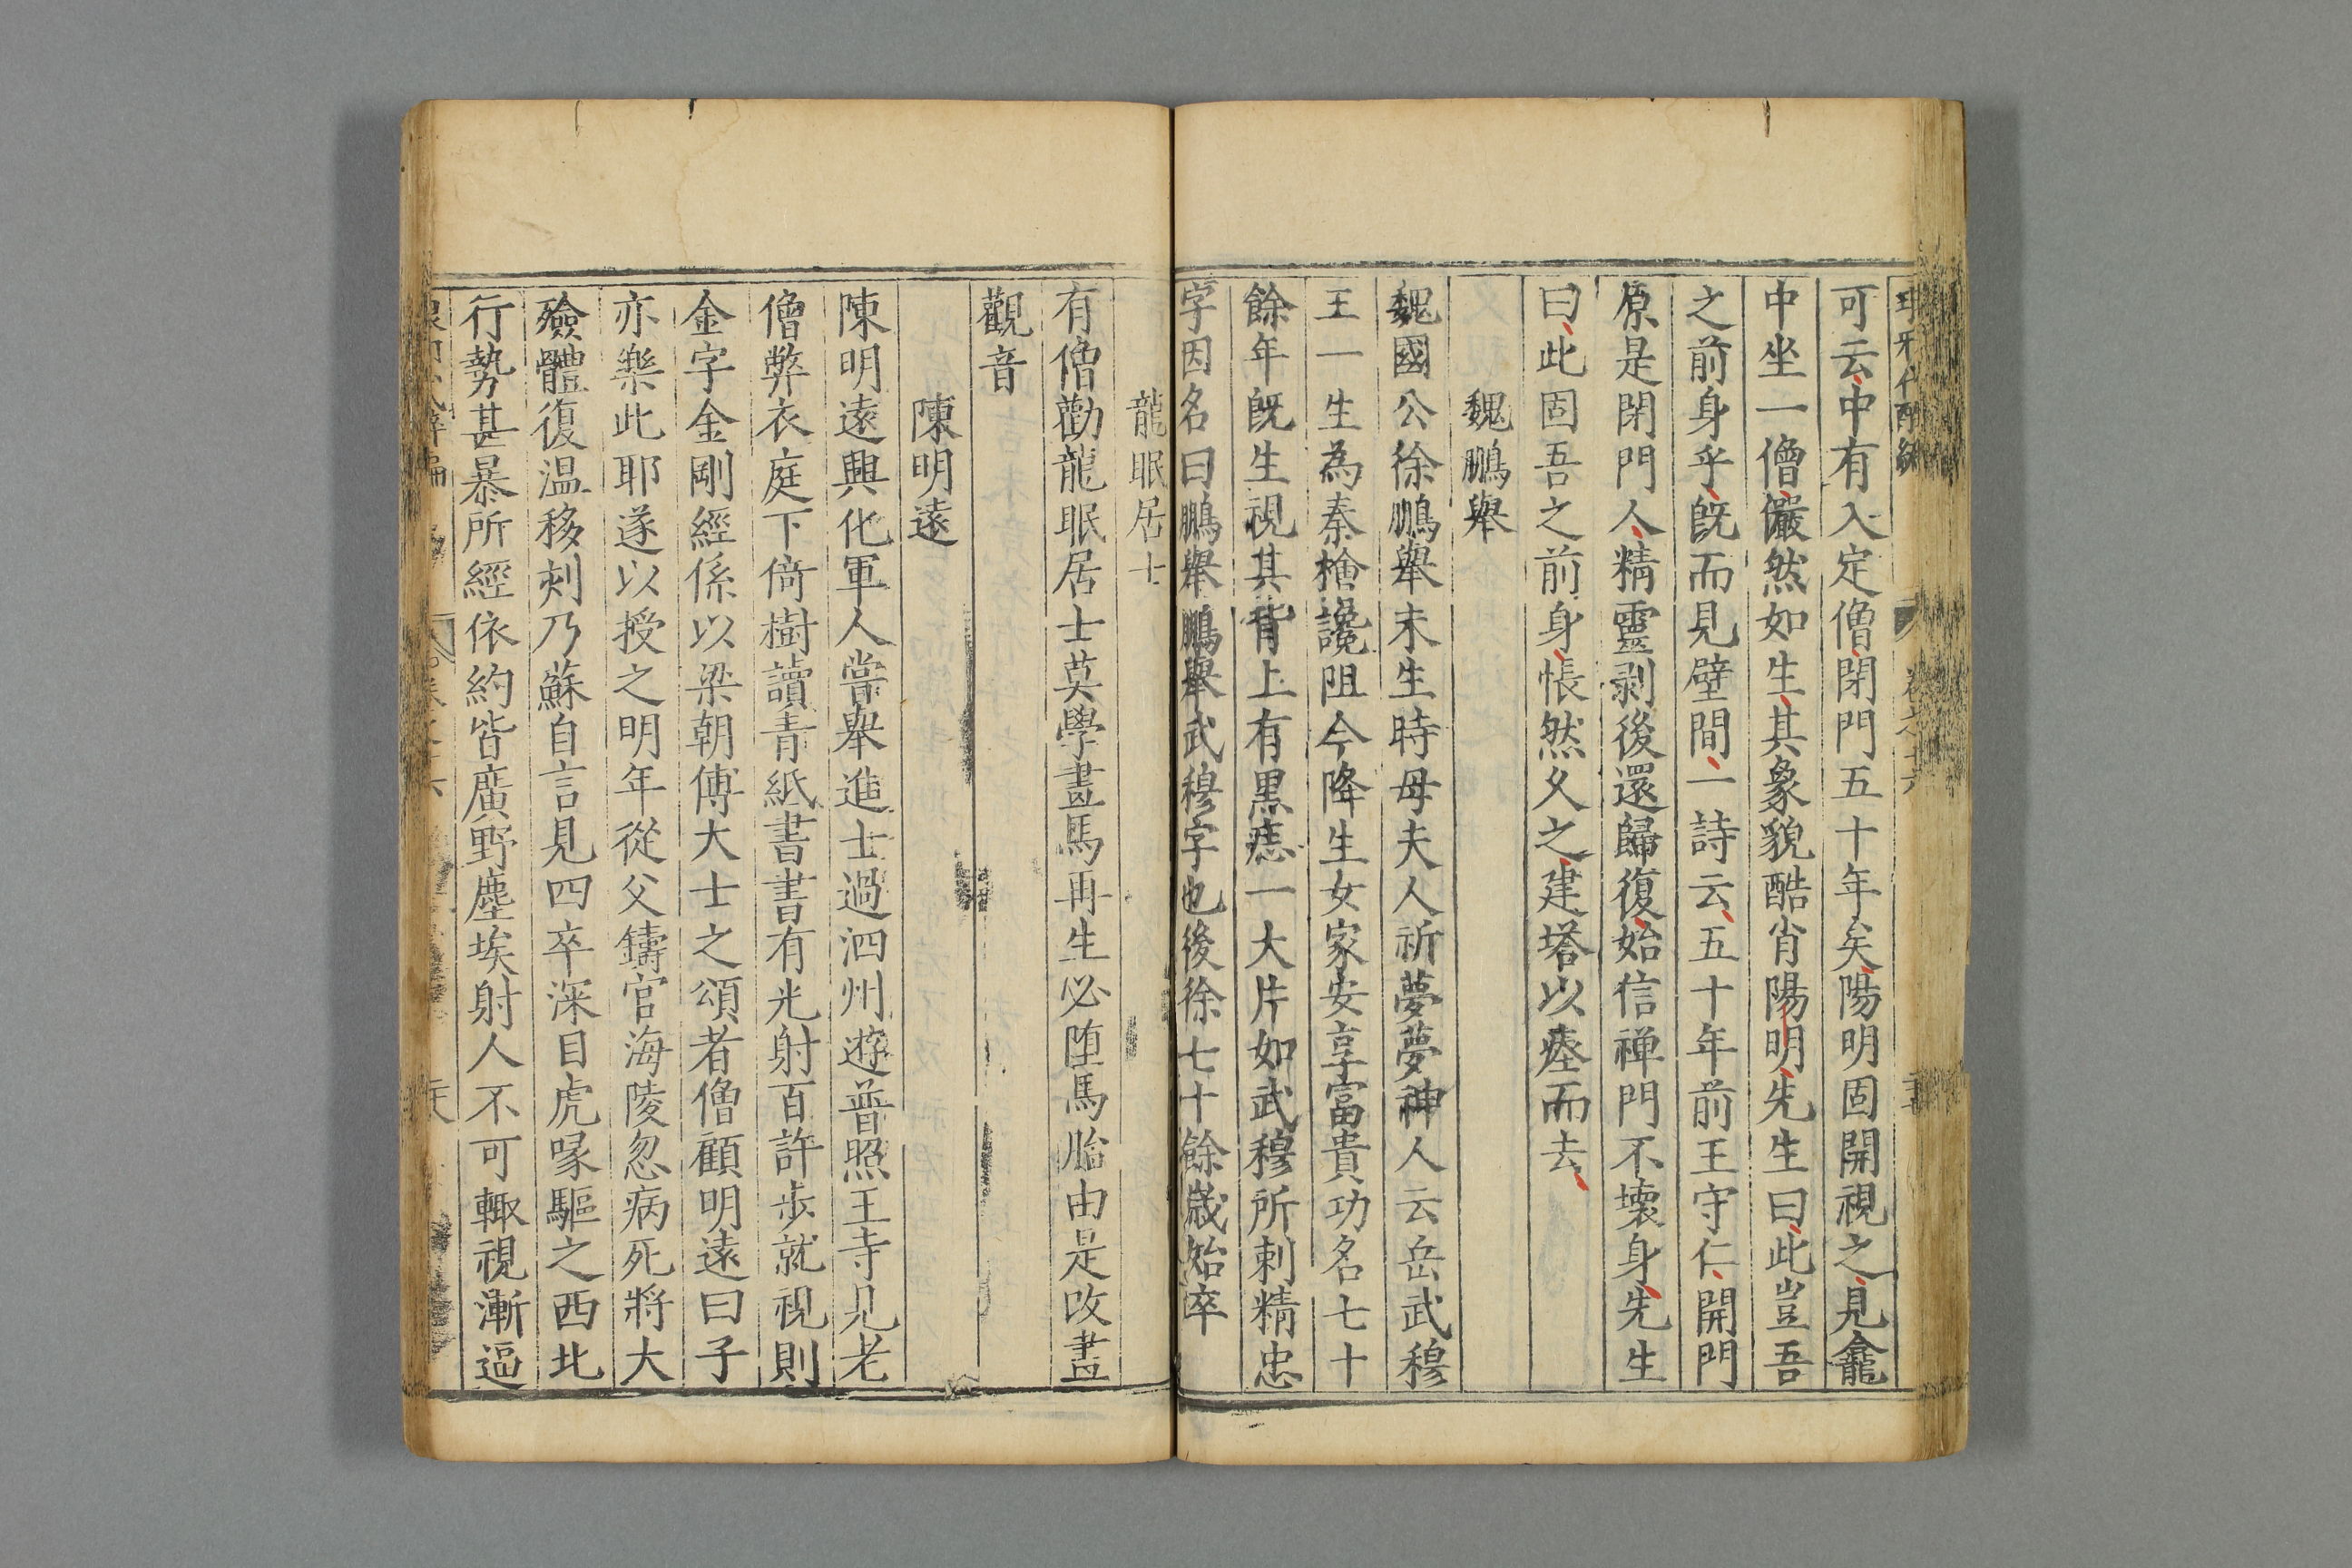 可云中有入定僧閉門五十年矣陽明固開視之見龕
中坐一僧儼然如生其象貌酷肖陽明先生曰此豈吾
之前身乎旣而見壁間一詩云五十年前王守仁開門
原是閉門人精靈剥後還歸復始信禅門不壞身先生
曰此固吾之前身悵然久之建塔以瘗而去
魏鵬舉
魏國公徐鵬舉未生時母夫人祈夢夢神人云岳武穆
王一生為秦檜讒阻今降生女家安享富貴功名七十
餘年旣生視其背上有黒痣一大片如武穆所刺精忠
字因名曰鵬舉鵬舉武穆字也後徐七十餘歳始卒
龍眠居士
有僧勸龍眠居士莫學畫馬再生必堕馬胎由是改畫
觀音
陳明遠
陳明遠興化軍人嘗舉進士過泗州遊普照王寺見老
僧弊衣庭下倚樹讀青紙書書有光射百許歩就視則
金字金剛經係以梁朝傅大士之頌者僧顧明遠曰子
亦樂此耶遂以授之明年從父鑄官海陵忽病死將大
殮體復温移刻乃蘇自言見四卒深目虎喙驅之西北
行勢甚暴所經依約皆廣野塵埃射人不可輙視漸逼